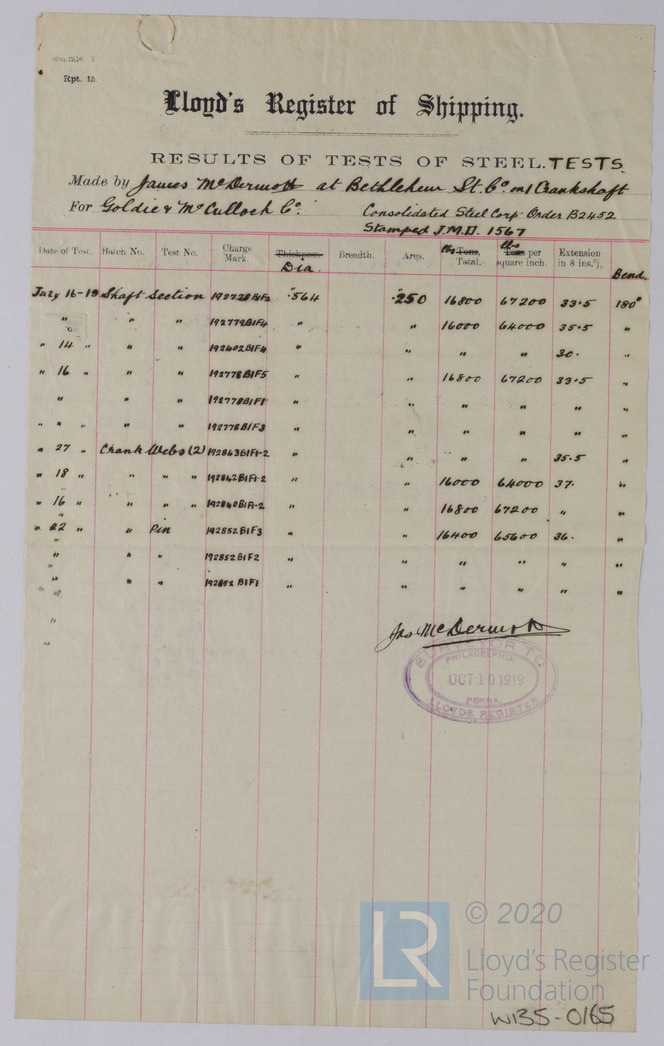 Rpt. 15.
Lloyd's Register of Shipping.
RESULTS OF TESTS OF STEEL. TESTS.
Made by James McDermott at Bethlehem St. Co. on 1 Crankshaft
For Goldie & McCulloch Co. Consolidated Steel Corp. Order B2452
Stamped J.M.D. 1567
Date of Test. Batch No. Test No. Charge Mark. Thickness. Dia. Breadth. Area. lbs Tons, Total. lbs Tons per square inch. Extension in 8 ins.% Bend.
July 16-19 Shaft Section 192728B1F2 .564 .250 16800 67200 33.5 180°
" " " 192779B1F4 " " 16000 64000 35.5 "
" 14 " " " 192402B1F4 " " " " 30. "
" 16 " " " 192778B1F5 " " 16800 67200 33.5 "
" " " 192778B1F1 " " " " " "
" " " " " 192778B1F3 " " " " " "
" 27 " Crank Webs (2) 192843B1F1-2 " " " " 35.5 "
" 18 " " " " 192842B1F1-2 " " 16000 64000 37. "
" 16 " " " " 192840B1F1-2 " " 16800 67200 " "
" 22 " " Pin 192852B1F3 " " 16400 65600 36. "
" " " 192852B1F2 " " " " " "
" " " 192852B1F1 " " " " " "
"
"
Jas McDermott
SURVEYOR TO
PHILADELPHIA
OCT 10 1919
PENNA.
LLOYDS REGISTER
LR
© 2020
Lloyd's Register
Foundation
W135-0165